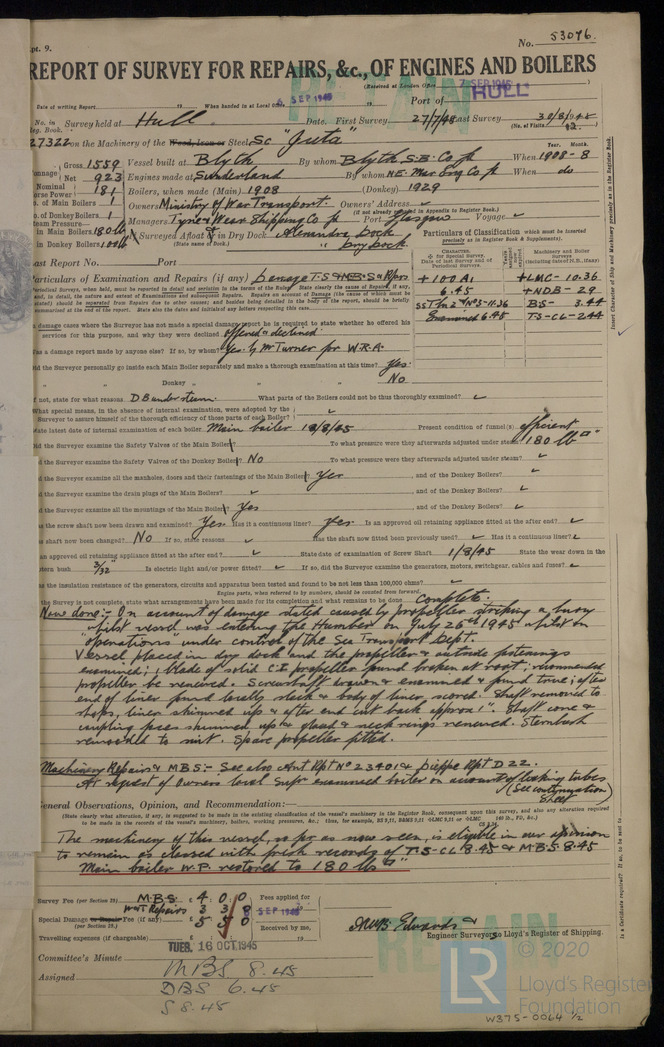 pt. 9.
No. 53076.
REPORT OF SURVEY FOR REPAIRS, &c., OF ENGINES AND BOILERS
(Received at London Office 7 SEP 1945)
Date of writing Report 19 When handed in at Local Office SEP 1945 19 Port of HULL
No. in Reg. Book. Survey held at Hull Date. First Survey 27/7/45 Last Survey 30/8/1945
(No. of Visits 12)
27322 on the Machinery of the Wood, Iron or Steel Sc "Juta"
Gross 1559 Vessel built at Blyth By whom Blyth S.B. Co Ld When 1908-8
Net 923 Engines made at Sunderland By whom N.E. Mar Eng Co Ld When do
Nominal Horse Power 181 Boilers, when made (Main) 1908 (Donkey) 1929
No. of Main Boilers 1 Owners Ministry of War Transport. Owners' Address
(if not already recorded in Appendix to Register Book.)
No. of Donkey Boilers 1 Managers Tyne & Wear Shipping Co Ld Port Glasgow Voyage
Steam Pressure in Main Boilers 180 lb If Surveyed Afloat or in Dry Dock Alexandra Dock
in Donkey Boilers 100 lb (State name of Dock.) " Dry dock
Particulars of Classification which must be inserted precisely as in Register Book & Supplements).
Last Report No. Port
Particulars of Examination and Repairs (if any) Damage T.S & B.S & Rprs
+100A1 +LMC-10.36
6.45 +NDB-29
SS The 2nd No3-11.36 BS- 3.44
Examined 6.45 TS-CL-2.44
In damage cases where the Surveyor has not made a special damage report he is required to state whether he offered his
services for this purpose, and why they were declined offered & declined
Was a damage report made by anyone else? If so, by whom? Yes by Mr Turner for W.R.A.
Did the Surveyor personally go inside each Main Boiler separately and make a thorough examination at this time? Yes
" " Donkey " " " " No
If not, state for what reasons D B under steam. What parts of the Boilers could not be thus thoroughly examined?
What special means, in the absence of internal examination, were adopted by the Surveyor to assure himself of the thorough efficiency of those parts of each Boiler?
State latest date of internal examination of each boiler Main boiler 18/8/45 Present condition of funnel(s) efficient
Did the Surveyor examine the Safety Valves of the Main Boiler? To what pressure were they afterwards adjusted under steam? 180 lb □"
Did the Surveyor examine the Safety Valves of the Donkey Boiler? No To what pressure were they afterwards adjusted under steam?
Did the Surveyor examine all the manholes, doors and their fastenings of the Main Boilers? Yes , and of the Donkey Boilers?
Did the Surveyor examine the drain plugs of the Main Boilers? , and of the Donkey Boilers?
Did the Surveyor examine all the mountings of the Main Boilers? Yes , and of the Donkey Boilers?
Has the screw shaft now been drawn and examined? Yes Has it a continuous liner? Yes. Is an approved oil retaining appliance fitted at the after end?
Has shaft now been changed? No If so, state reasons Has the shaft now fitted been previously used? Has it a continuous liner?
Is an approved oil retaining appliance fitted at the after end? State date of examination of Screw Shaft 1/8/45 State the wear down in the
stern bush 3/32" Is electric light and/or power fitted? If so, did the Surveyor examine the generators, motors, switchgear, cables and fuses?
Has the insulation resistance of the generators, circuits and apparatus been tested and found to be not less than 100,000 ohms?
Engine parts, when referred to by numbers, should be counted from forward.
If the Survey is not complete, state what arrangements have been made for its completion and what remains to be done Complete.
Now done:- On account of damage stated caused by propeller striking a buoy
whilst vessel was entering the Humber on July 26th 1945 whilst on
"operations" under control of the Sea Transport Dept.
Vessel placed in dry dock and the propeller & outside fastenings
examined; 1 blade of solid C.I propeller found broken at root; recommended
propeller be renewed. Screwshaft drawn & examined & found true; after
end of liner found locally slack & body of liner, scored. Shaft removed to
shops, liner skimmed up & after end cut back approx 1". Shaft cone &
coupling faces skimmed up & gland & neck rings renewed. Sternbush
rewooded to suit. Spare propeller fitted.
Machinery Repairs & M B S:- See also Ant Rpt No 23401 & Dieppe Rpt D 22.
At request of Owners local Supr examined boiler on account of leaking tubes
(See continuation sheet)
General Observations, Opinion, and Recommendation:—
(State clearly what alteration, if any, is suggested to be made in the existing classification of the vessel's machinery in the Register Book, consequent upon this survey, and also any alteration required
to be made in the records of the vessel's machinery, boilers, working pressures, &c.;
The machinery of this vessel, so far as now seen, is eligible in our opinion
to remain as classed with fresh records of T.S-CL 8.45 & MBS 8.45
Main boiler W.P. restored to 180 lbs □"
Survey Fee (per Section 29) M.B.S. £ 4 : 0 : 0 Fees applied for
W&T Repairs 3 3 0 SEP 1945
Special Damage or Repair Fee (if any) (per Section 29.) £ 5 5 0 Received by me,
Travelling expenses (if chargeable) £ 19
Engineer Surveyors to Lloyd's Register of Shipping.
Committee's Minute TUES. 16 OCT 1945
Assigned MBS 8.45
DBS 6.45
S 8.45
Insert Character of Ship and Machinery precisely as in the Register Book.
Is a Certificate required? If so, to be sent to
© 2020
LR
Lloyd's Register
Foundation
W375-0064 1/2